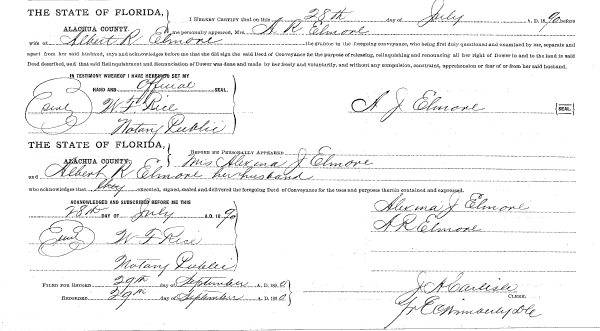 THE STATE OF FLORIDA,
ALACHUA COUNTY.
I HEREBY CERTIFY that on this 28th day of July A.D. 1890 before
me personally appeared, Mrs. A R Elmore
wife of Albert R. Elmore the grantor in the foregoing conveyance, who being first duly questioned and examined by her, separate and
apart from her said husband, says and acknowledges before me that she did sign the said Deed of Conveyance for the purpose of releasing, relinquishing and renouncing all her right of Dower in and to the land in said
Deed described, and that said Relinquishment and Renunciation of Dower was done and made by her freely and voluntarily, and without any compulsion, constraint, apprehension or fear of or from her said husband.
IN TESTIMONY WHEREOF I HAVE HERETO SET MY
HAND AND Official SEAL.
Seal W F Rice
Notary Public
A J Elmore [SEAL]
THE STATE OF FLORIDA,
ALACHUA COUNTY;
BEFORE ME PERSONALLY APPEARED Mrs Alexina J Elmore
and Albert R Elmore her husband
who acknowledges that they executed, signed, sealed and delivered the foregoing Deed of Conveyance for the uses and purposes therein contained and expressed.
ACKNOWLEDGED AND SUBSCRIBED BEFORE ME THIS
28th DAY OF July A.D. 1890
Seal W F Rice
Notary Public
Alexina J Elmore
A R Elmore
FILED FOR RECORD 29th day of September A.D. 1890
RECORDED 29th day of September A.D. 1890
J A Carlisle
CLERK.